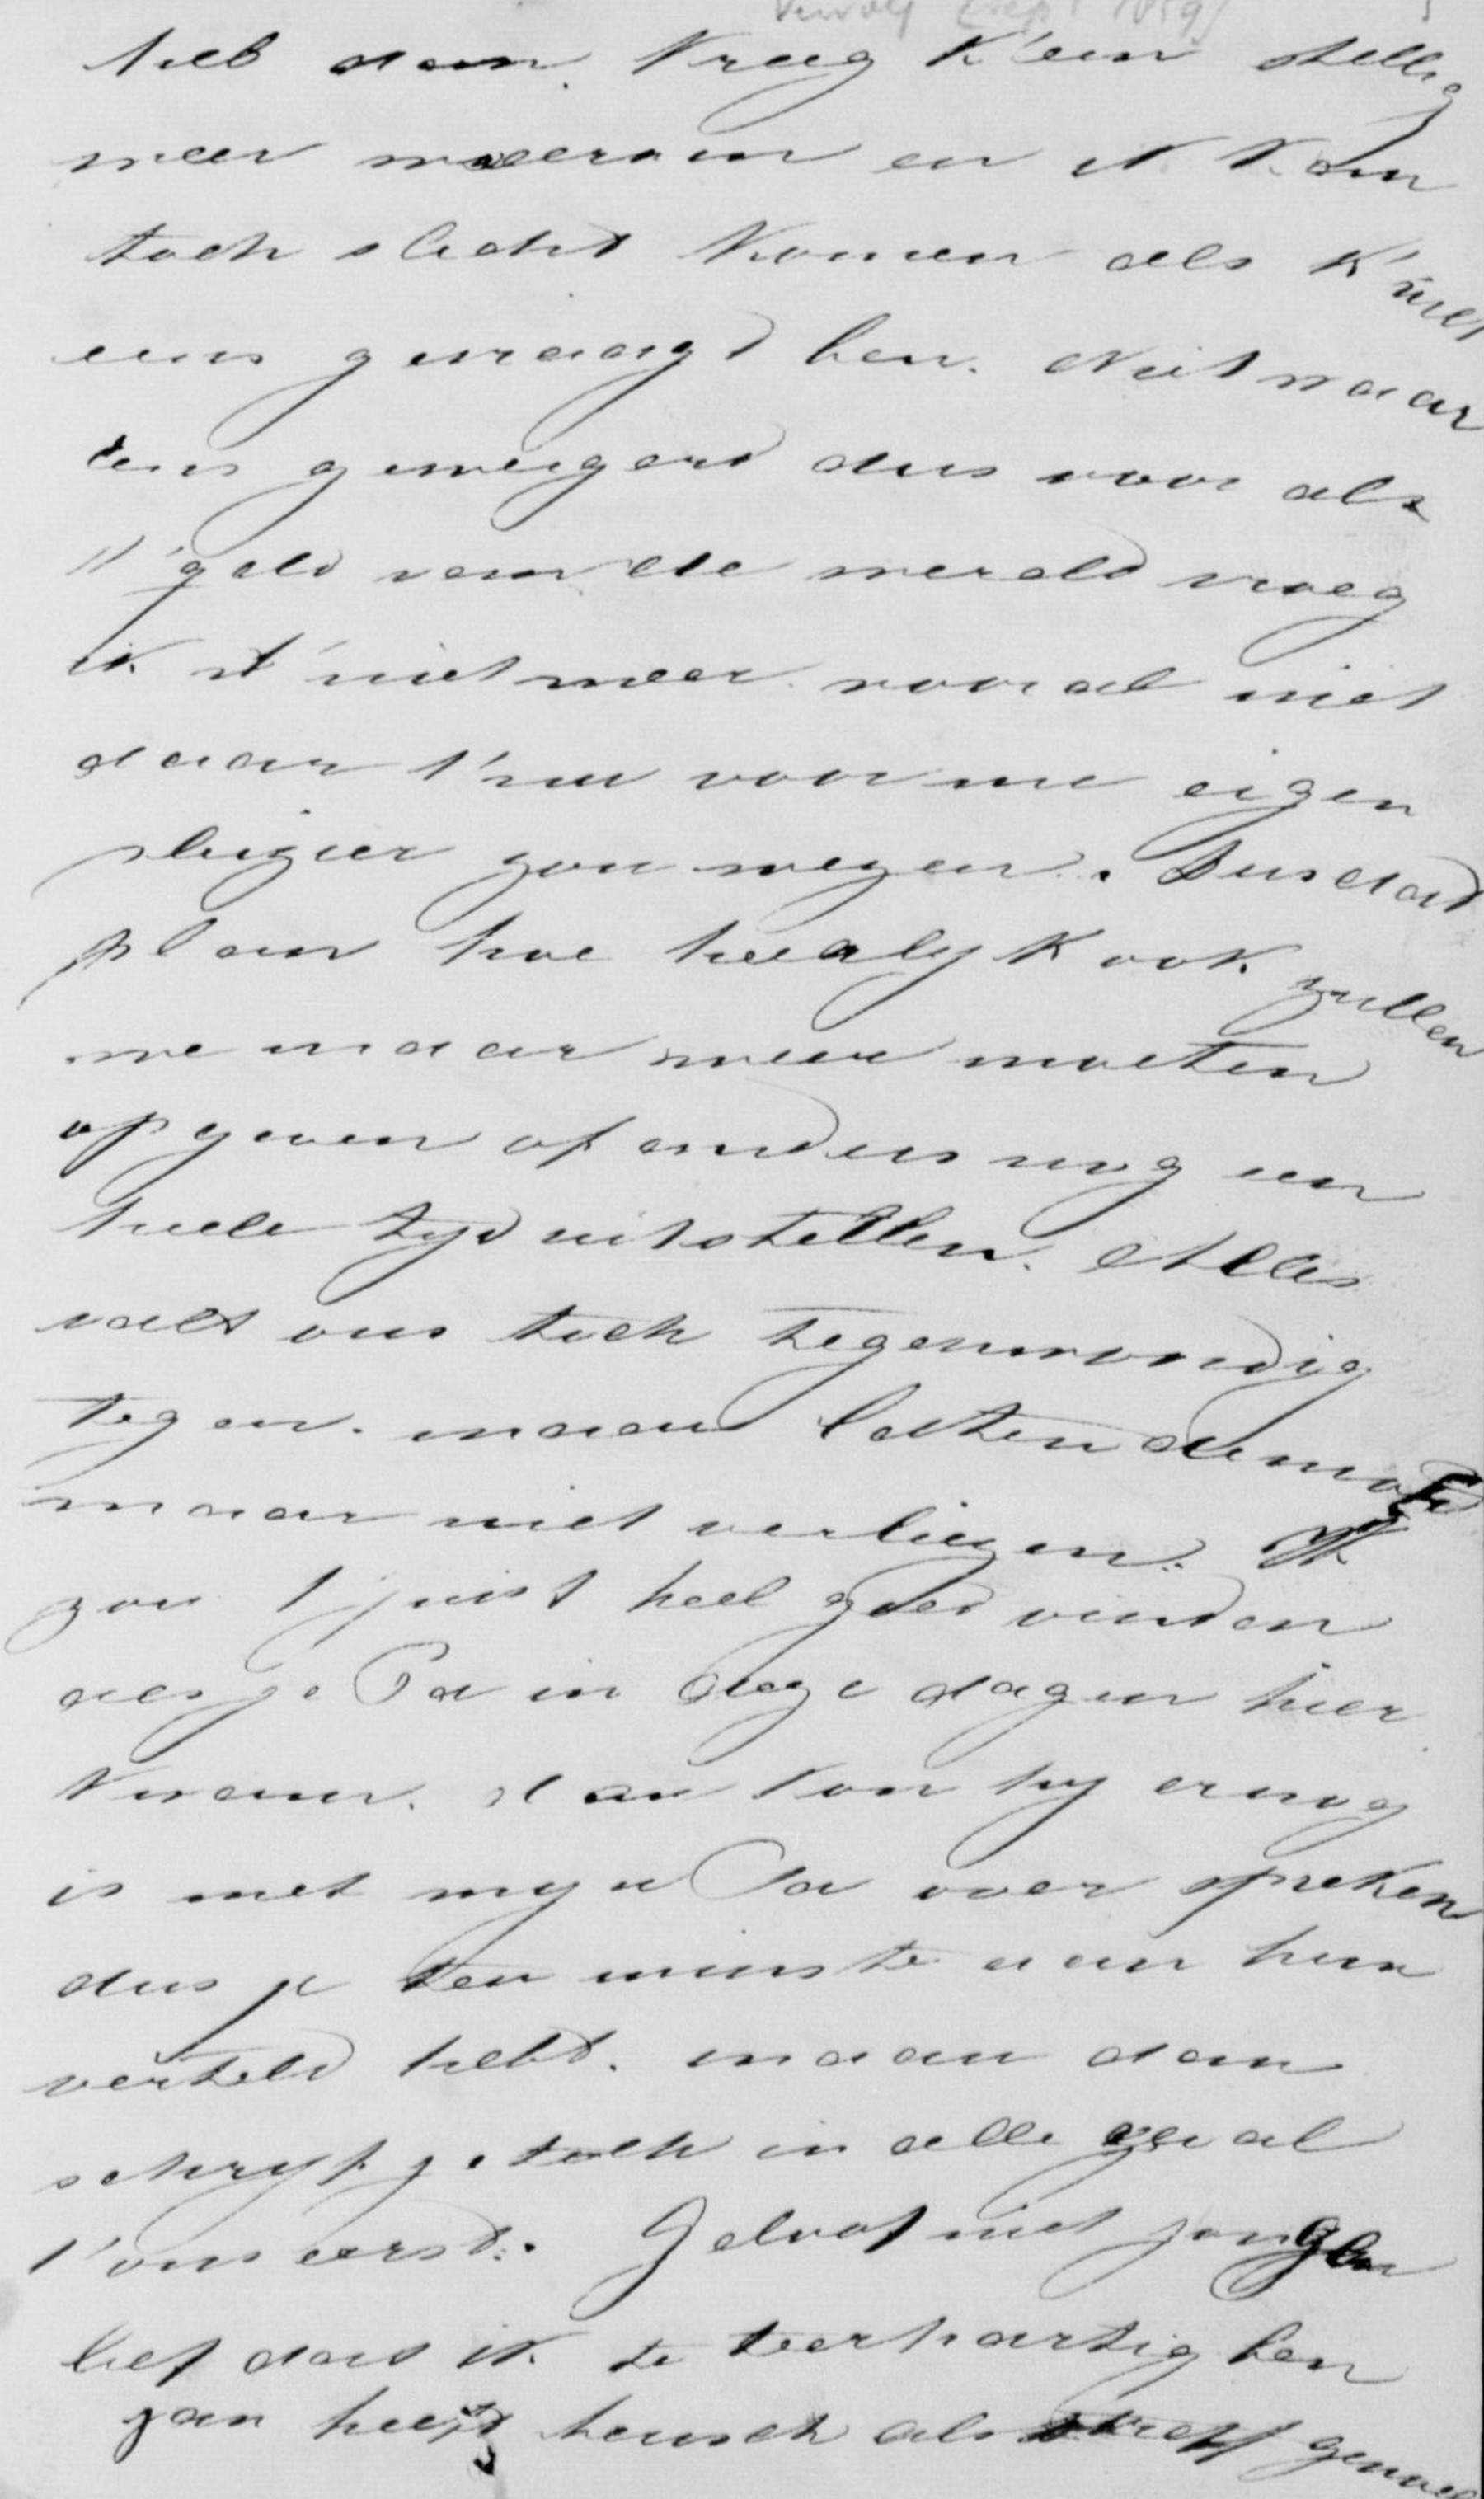 heb dan. Vraag k'een stellig
weer waarom en ik kan
toch slecht komen als k'niet
eens gevraagd ben. Niet waar
eens geweigerd dus voor als
't geld van de wereld vraag
ik 't niet meer vooral niet
daar 'k nu voor me eigen
plezier zou wezen. Dus dat
plan hoe heerlyk ook zullen
we maar weer moeten
opgeven of anders nog een
heele tyd uitstellen. Alles
valt ons toch tegenwoordig
tegen. maar laten de moed
maar niet verliezen. Ik
zou 't juist heel goed vinden
als je Pa in deze dagen hier
kwam. dan kon hy er nog
is met myn Pa over spreken
als je ten minste aan hem
verteld hebt. maar dan
schryf je toch in alle geval
't ons eerst. Geloof niet jongen
lief dat ik te teerhartig ben
Jan heeft heusch als